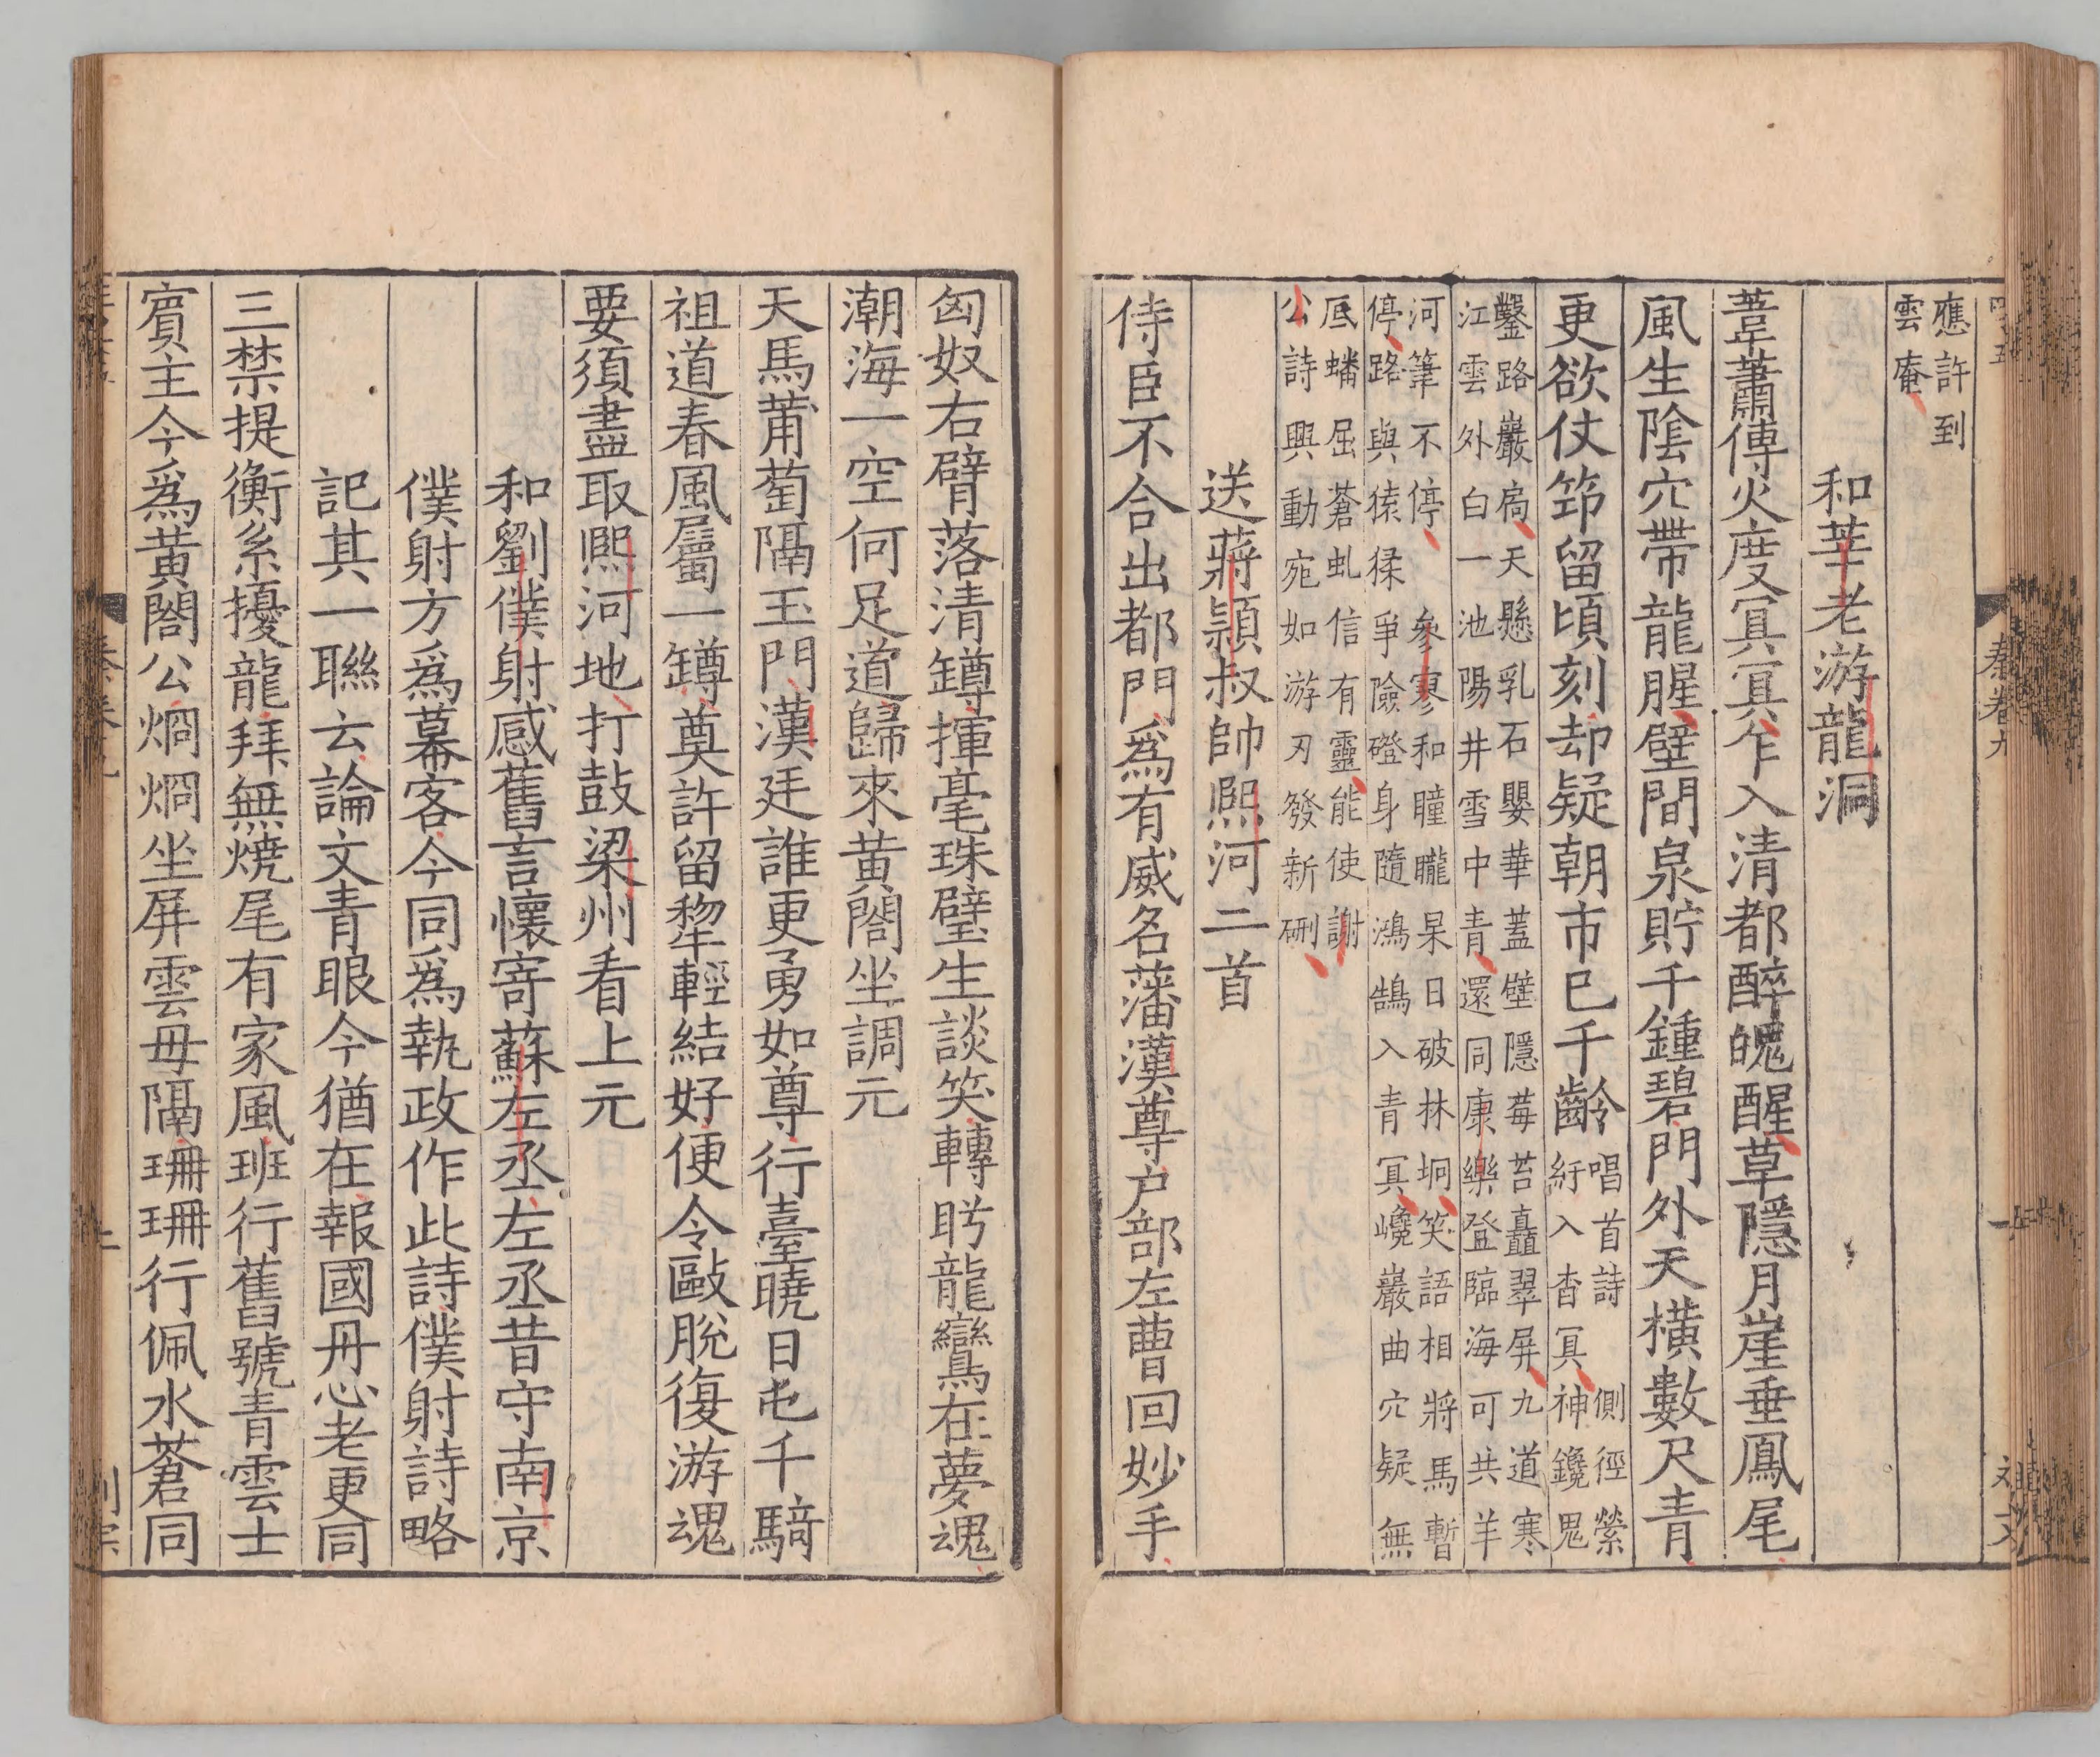 應許到
雲庵
和莘老游龍洞
葦蕭傳火度冥冥乍入清都醉魄醒草隱月崖垂鳳尾
風生陰穴帶龍腥壁間泉貯千鍾碧門外天橫數尺青
更欲仗筇留頃刻却疑朝市已千齡
唱首詩
紆入杳冥
側徑縈
神鑱鬼
鑿路巖扃天懸乳石嬰華蓋壁隱莓苔矗翠屏九道寒
江雲外白一池陽井雪中青還同康樂登臨海可共羊
河筆不停參寥和曈曨杲日破林坰笑語相將馬暫
停路與猿猱爭險磴身隨鴻鵠入青冥巉巖曲穴疑無
底蟠屈蒼虬信有靈能使謝
公詩興動宛如游刃發新硎
送蔣潁叔帥熙河二首
侍臣不合出都門爲有威名藩漢尊户部左曹回妙手
匈奴右臂落清罇揮毫珠璧生談笑轉眄龍鸞在夢魂
潮海一空何足道歸來黄閤坐調元
天馬莆萄隔玉門漢廷誰更勇如尊行臺曉日屯千騎
祖道春風屬一罇奠許留犂輕結好便令毆脫復游魂
要須盡取熙河地打鼓梁州看上元
和劉僕射感舊言懷寄蘇左丞左丞昔守南京
僕射方爲幕客今同爲執政作此詩僕射詩略
記其一聯云論文青眼今猶在報國丹心老更同
三禁提衡系擾龍拜無燒尾有家風班行舊號青雲士
賓主今爲黄閤公烱烱坐屏雲母隔珊珊行佩水蒼同
秦卷九